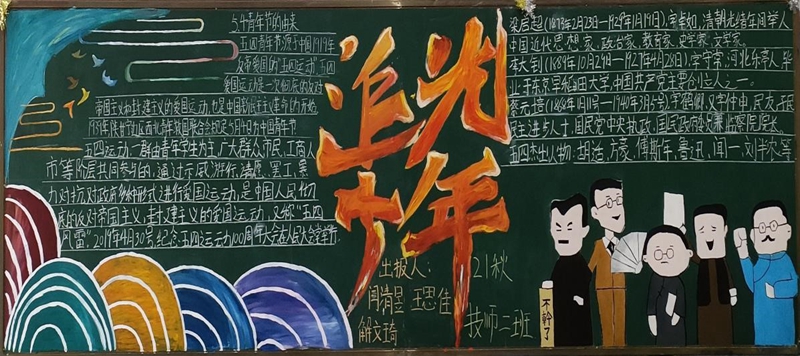 五四青年节的由来
五四青年节源于中国1919年
反帝爱国的"五四运动"，五四
爱国运动是一次彻底的反对
帝国主义和封建主义的爱国运动，也是中国新民主主义革命的开始。
1939年陕甘宁边区西北青年救国联合会规定5月4日为中国青年节。
五四运动，一群由青年学生为主，广大群众、市民、工商人
市等阶层共同参与的，通过示威游行、请愿、罢工、暴
力对抗对政府多种形式进行爱国运动，是中国人民彻
底的反对帝国主义、封建主义的爱国运动，又称"五四
风雷"。2019年4月30号，纪念五四运动100周年大会在人民大会堂举行。
追光
少年
出报人：
闫清昱 王思佳
解文琦
21秋
技师二班
梁启超（1873年2月23日—1929年1月19日），字卓如，清朝光绪年间举人
中国近代思想家、政治家、教育家、史学家、文学家。
李大钊（1889年10月29日—1927年4月28日），字守常，河北乐亭人，毕
业于东京早稻田大学，中国共产党主要创立人之一。
蔡元培（1868年1月11日—1940年3月5号）字鹤卿，又字仲申、民友、孑民
民主进步人士，国民党中央执政，国民政府
监察院院长。
五四杰出人物：胡适、方豪、傅斯年、鲁迅、闻一、刘半农等
不幹了